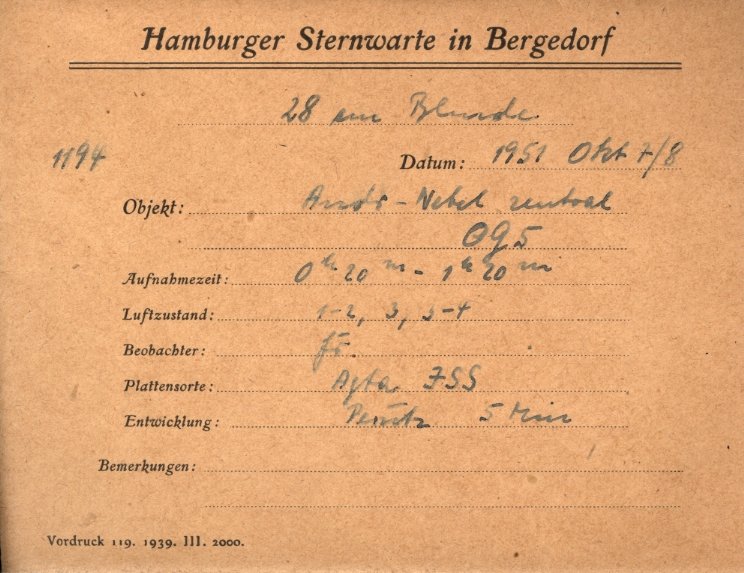 Hamburger Sternwarte in Bergedorf
28 cm Blende
1194 Datum: 1951 Okt 7/8
Objekt: Andr-Nebel zentral
OG5
Aufnahmezeit: 0h 20m - 1h 20m
Luftzustand: 1-2, 3, 3-4
Beobachter:
Plattensorte: Agfa ISS
Entwicklung: Perutz 5 Min
Bemerkungen:
Vordruck 119. 1939. III. 2000.